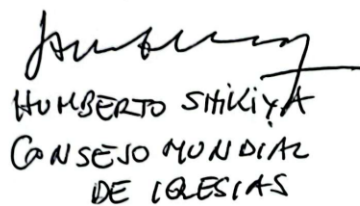 HUMBERTO SHIKIYA
CONSEJO MUNDIAL
DE IGLESIAS